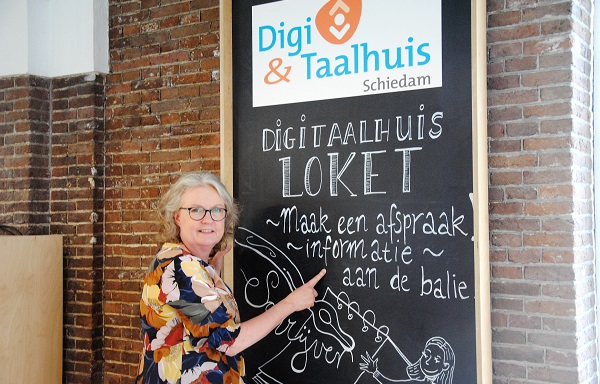 Digi
& Taalhuis
Schiedam
DIGITAALHUIS
LOKET
~Maak een afspraak!
~informatie~
aan de balie
Schrijven